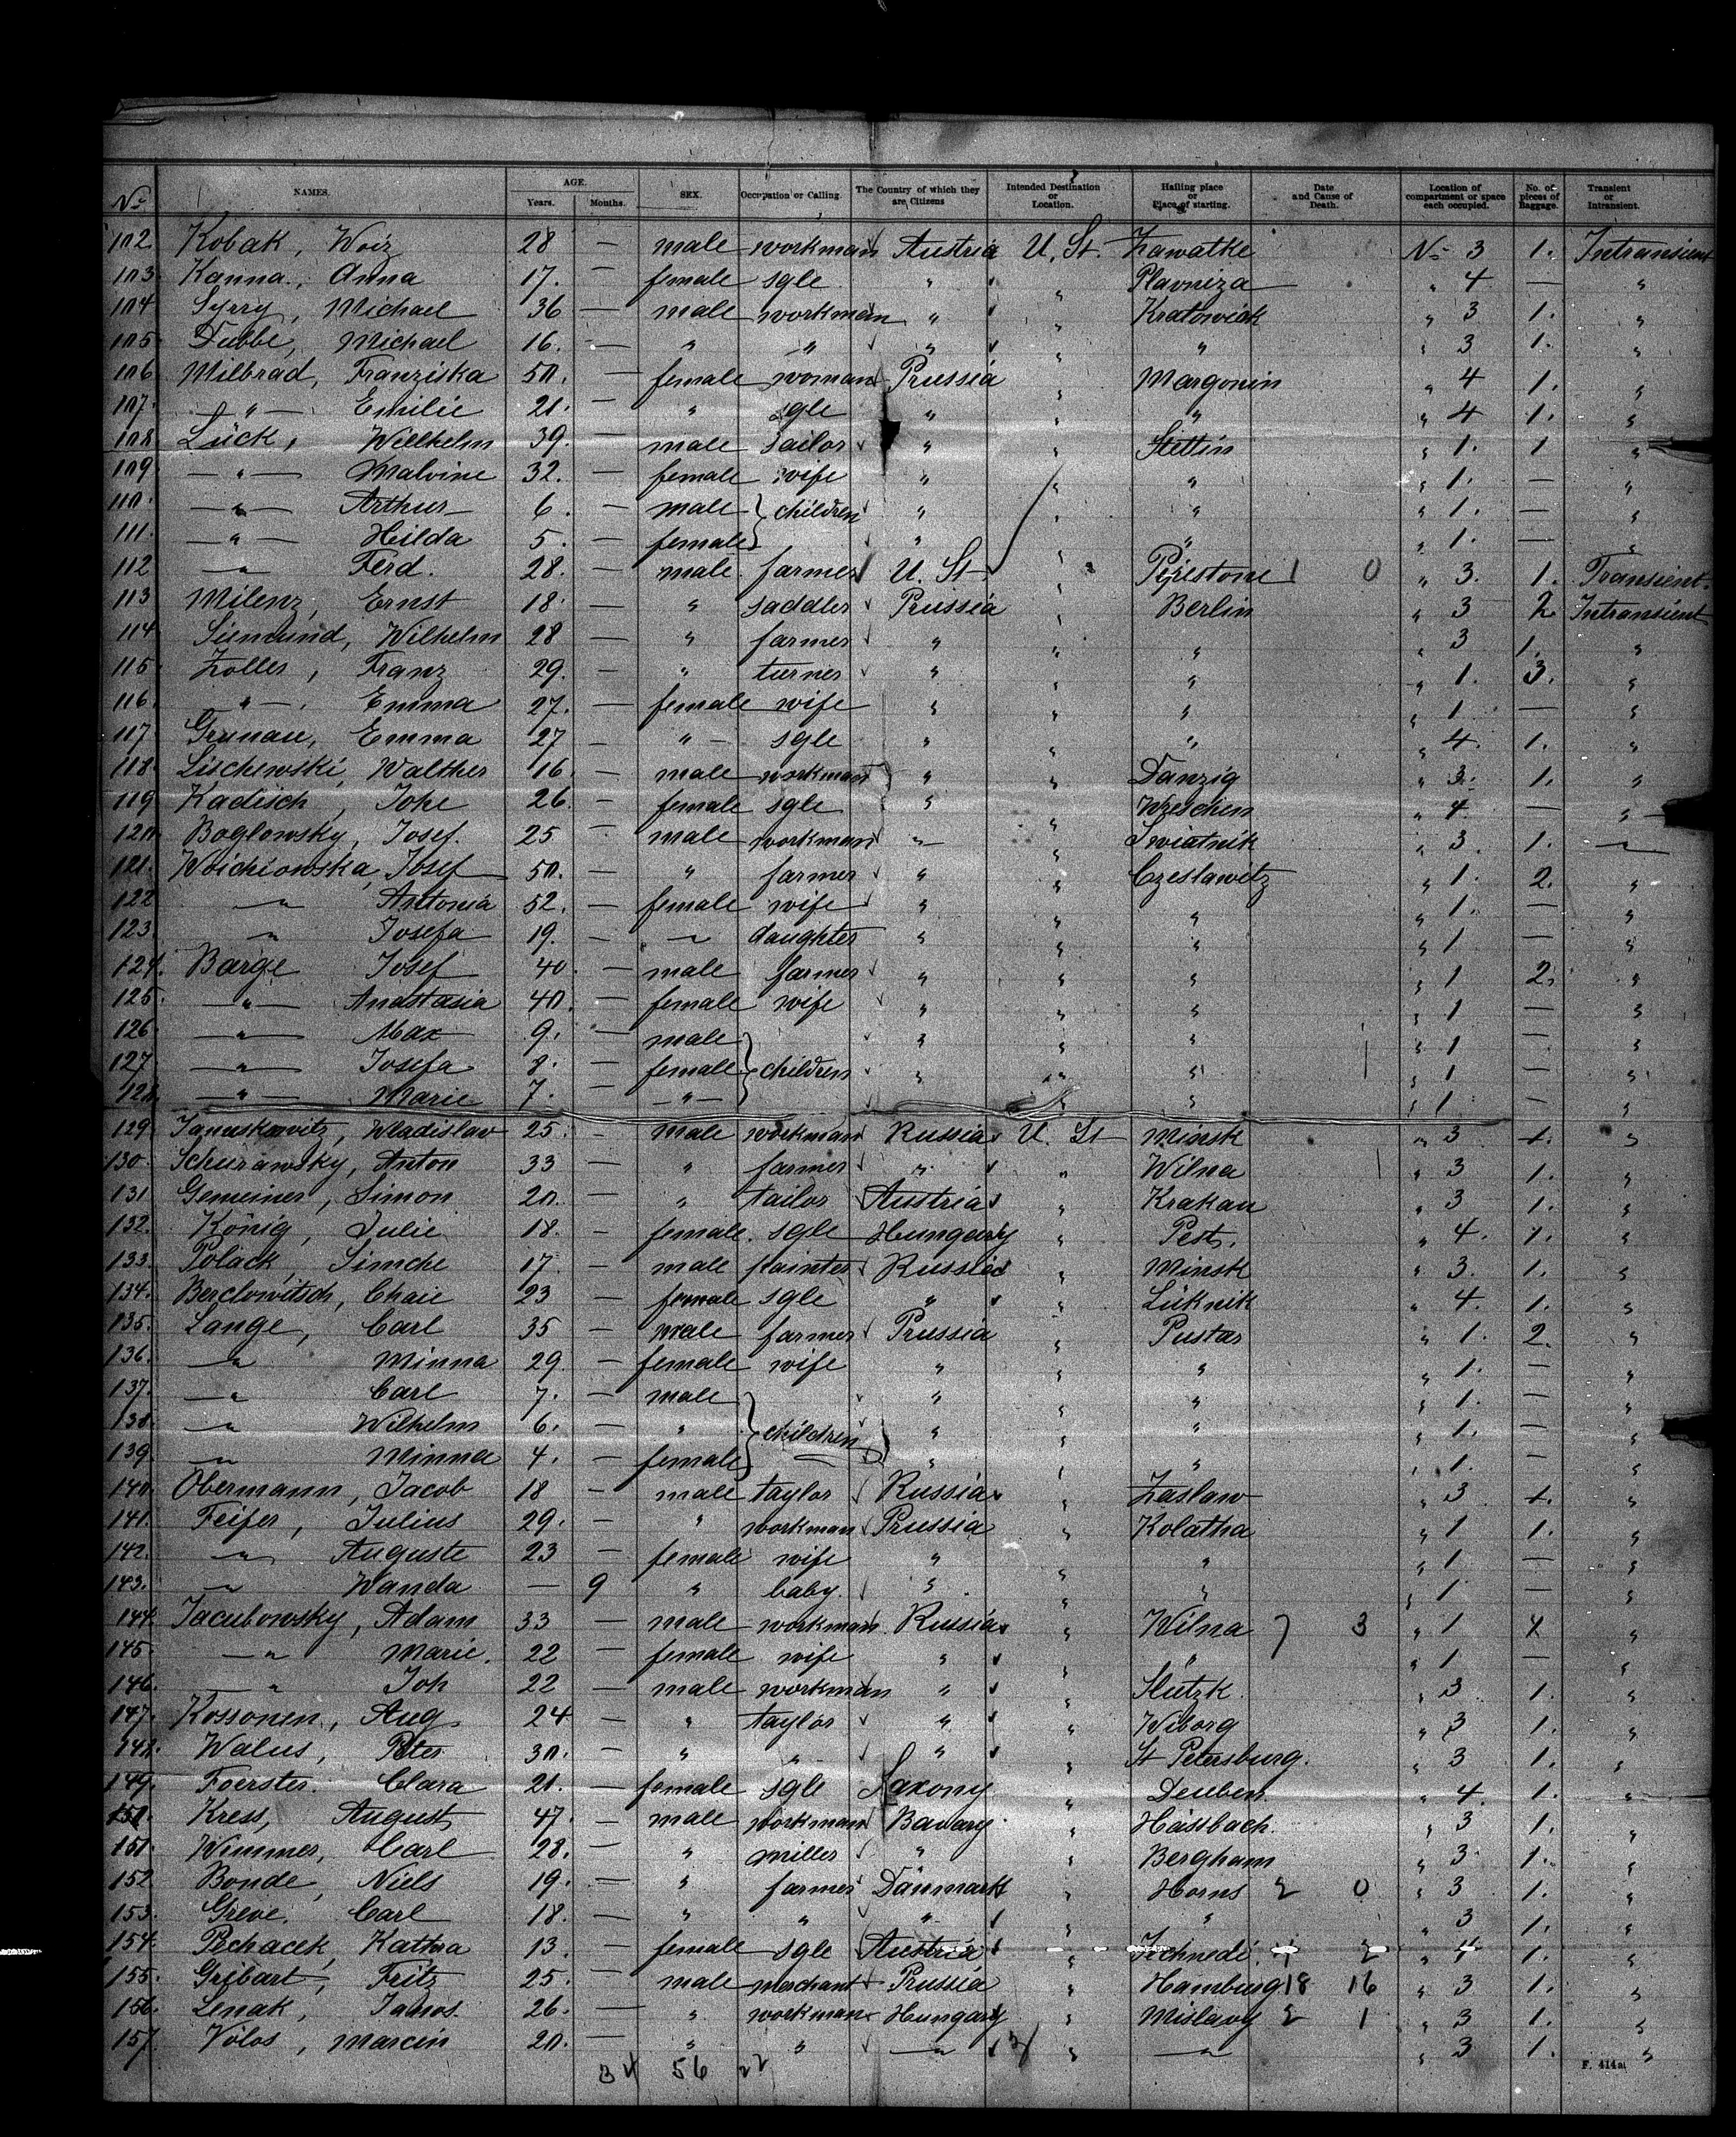 No NAMES. AGE. Years. Months. SEX. Occupation or Calling. The Country of which they are Citizens Intended Destination or Location. Hailing place or Place of starting. Date and Cause of Death. Location of compartment or space each occupied. No. of pieces of Baggage. Transient or Intransient.
102 Kobak, Woiz 28 — male workman Austria U. St. Zawatke No 3 1. Intransient
103 Kanna, Anna 17. — female sgle " " Plavniza " 4 — "
104 Syrry, Michael 36 — male workman " " Kratowiak " 3 1. "
105 Dubbe, Michael 16. — " " " " " " 3 1. "
106 Milbrad, Franziska 50. — female woman Prussia " Margonin " 4 1. "
107. — " — Emilie 21. — " sgle " " " " 4 1. "
108 Lück, Willhelm 39. — male sailor " " Stettin " 1. 1 "
109 — " — Malvine 32. — female wife " " " " 1. — "
110. — " — Arthur 6. — male children " " " " 1. — "
111. — " — Hilda 5. — female " " " " 1. — "
112 — " Ferd. 28. — male farmer U. St " Pipestone 1 0 " 3. 1. Transient.
113 Milenz, Ernst 18. — " saddler Prussia " Berlin " 3 2 Intransient
114. Siemund, Wilhelm 28 — " farmer " " " " 3 1. "
115 Zoller, Franz 29. — " turner " " " " 1. 3. "
116. " —. Emma 27. — female wife " " " " 1 — "
117. Grunau, Emma 27 — " — sgle " " " " 4. 1. "
118. Lischewski, Walther 16 — male workman " " Danzig " 3. 1. "
119 Kadisch, Johe 26. — female sgle " " Wreschen " 4. — "
120. Boglowsky, Josef. 25 — male workman " — " Swiatnik " 3. 1. "
121. Woichiowska, Josef 50. — " farmer " " Czeslawitz " 1. 2. "
122 — " Antonia 52. — female wife " " " " 1. — "
123. " Josefa 19. — " daughter " " " " 1 — "
124. Barge Josef 40. — male farmer " " " " 1 2. "
125. — " — Anastasia 40. — female wife " " " " 1 — "
126 — " — Max 9. — male " " " " 1 — "
127 — " — Josefa 8. — female children " " " " 1 — "
128. — " — Marie 7. — — " — " " " 1 — "
129. Januskowitz, Wladislav 25. — male workman Russia U. St Minsk " 3 1. "
130. Schurawsky, Anton 33 — " farmer " " Wilna " 3 1. "
131 Gemeiner, Simon 20. — " tailor Austria " Krakau " 3 1. "
132. König, Julie 18. — female. sgle Hungary " Pest. " 4. 1. "
133. Polack, Simche 17. — male painter Russia " Minsk " 3. 1. "
134. Berclowitsch, Chaie 23 — female sgle " " Luknik " 4. 1. "
135. Lange, Carl 35 — male farmer Prussia " Pustar " 1. 2. "
136. — " Minna 29. — female wife " " " " 1. — "
137. — " Carl 7. — male " " " " 1. — "
138. — " Wilhelm 6. — " children " " " " 1. — "
139. — " Minna 4. — female " " " " 1. — "
140. Obermann, Jacob 18 — male taylor Russia " Zaslaw " 3 1. "
141. Feifer, Julius 29. — " workman Prussia " Kolatka " 1 1. "
142. — " Auguste 23 — female wife " " " " 1 — "
143. — " Wanda — 9 " baby. " " " " 1. — "
144. Jacubowsky, Adam 33 — male workman Russia " Wilna 7 3 " 1 "
145. — " Marie. 22 — female wife " " " " 1 — "
146. — " Joh 22 — male workman " " Slutzk. " 3 1. "
147. Kossonen, Aug. 24 — " taylor " " Wiborg " 3 1. "
148. Walus, Peter 30. — " " " " St Petersburg. " 3 1. "
149. Foerster. Clara 21. — female sgle Saxony " Deuben " 4. 1. "
150. Kress, August 47. — male workman Bavary " Hassbach. " 3 1. "
151. Wimmer, Carl 28. — " miller " " Bergham " 3 1. "
152 Bonde, Niels 19. — " farmer Danmark " Horns 2 0 " 3 1. "
153. Greve. Carl 18. — " " " " " " 3 1. "
154. Pechacek, Kathra 13. — female sgle Austria " " 4 1. "
155. Gribart, Fritz 25. — male merchant Prussia " Hamburg 18 16 " 3 1. "
156. Lenak, Janos. 26. — " workman Hungary " Mislavy 2 1 " 3 1. "
157. Volos, Marcin 20. — " " — " " — " " 3 1. "
34 56 22
F. 414a